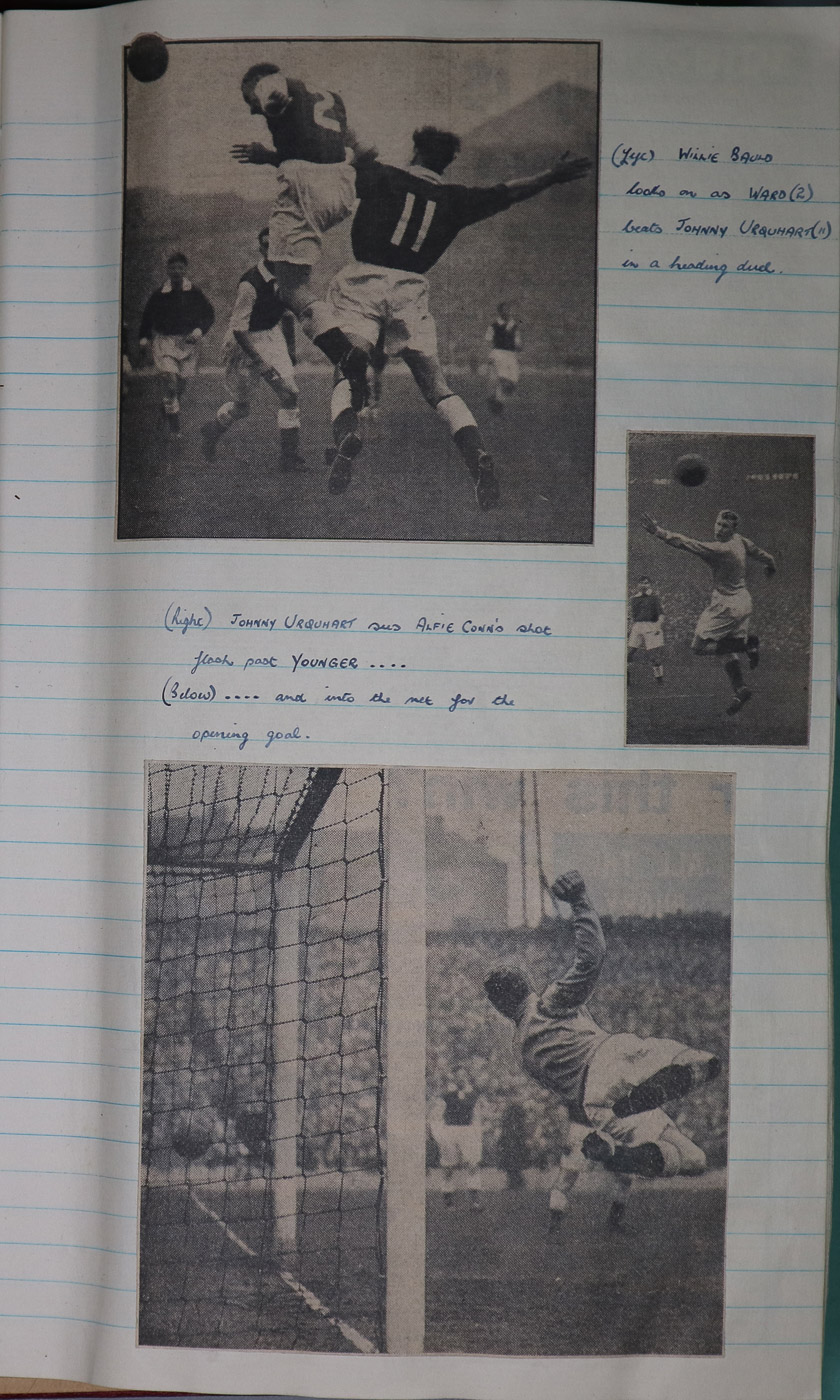 (Left) WILLIE BAULD
looks on as WARD (2)
beats JOHNNY URQUHART (11)
in a heading duel.
2
11
(Right) JOHNNY URQUHART sees ALFIE CONN'S shot
flash past YOUNGER ....
(Below) .... and into the net for the
opening goal.